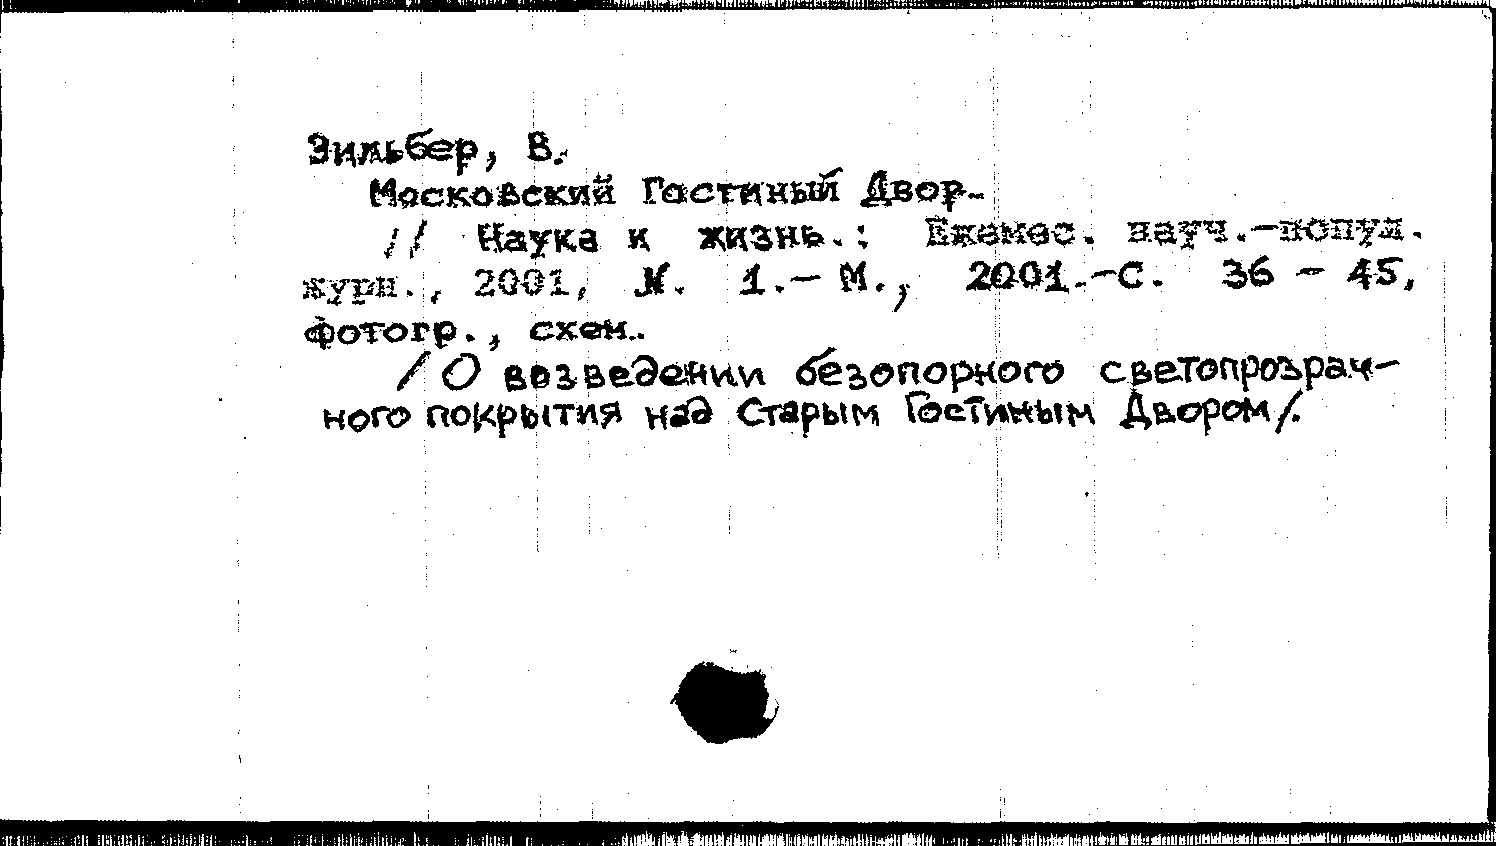 Зильбер, В.
Московский Гостиный Двор.
// Наука и жизнь.: Ежемес. науч.-попул.
журн., 2001, №. 1.- М., 2001.-С. 36 - 45,
фотогр., схем..
/О возведении безопорного светопрозрач-
ного покрытия над Старым Гостиным Двором/.